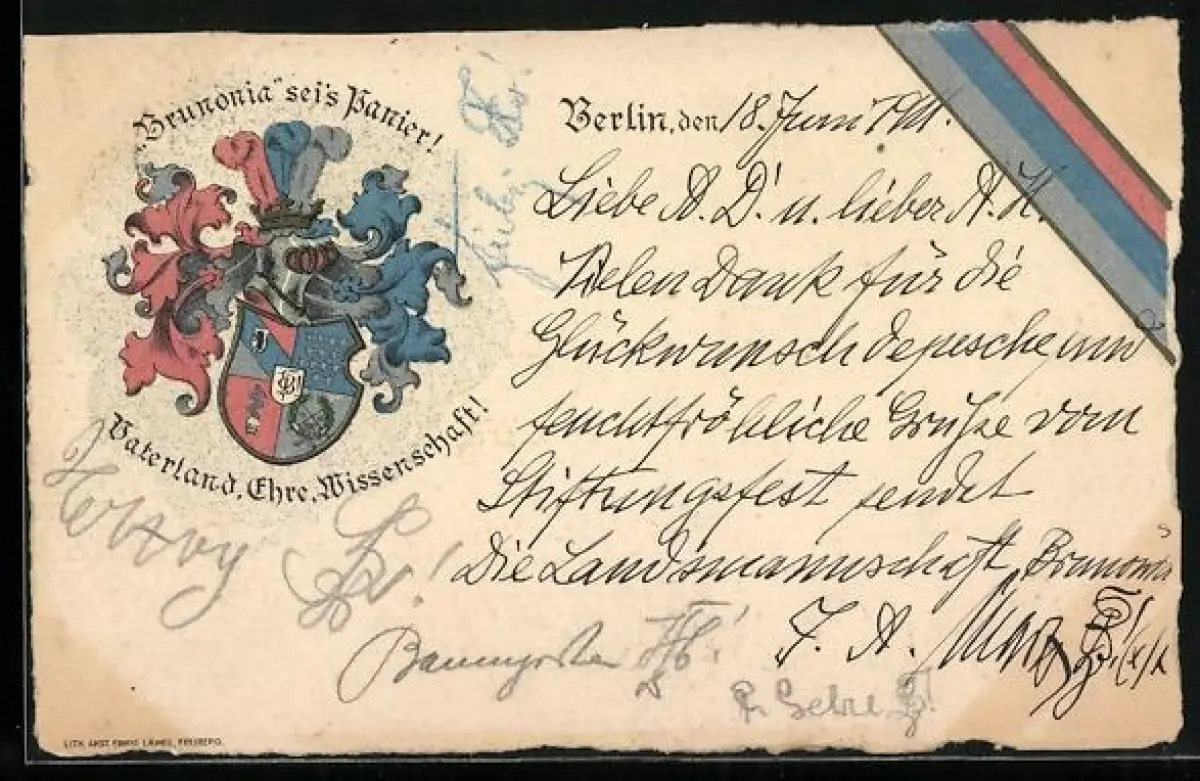 „Brunonia" sei's Panier!
Vaterland, Ehre, Wissenschaft!
Berlin, den 18. Juni 1911.
Liebe A. D. u. lieber A. H.
Vielen Dank für die
Glückwunschdepesche und
feuchtfröhliche Grüße vom
Stiftungsfest sendet
Die Landsmannschaft Brunonia
I. A.
LITH. ANST.